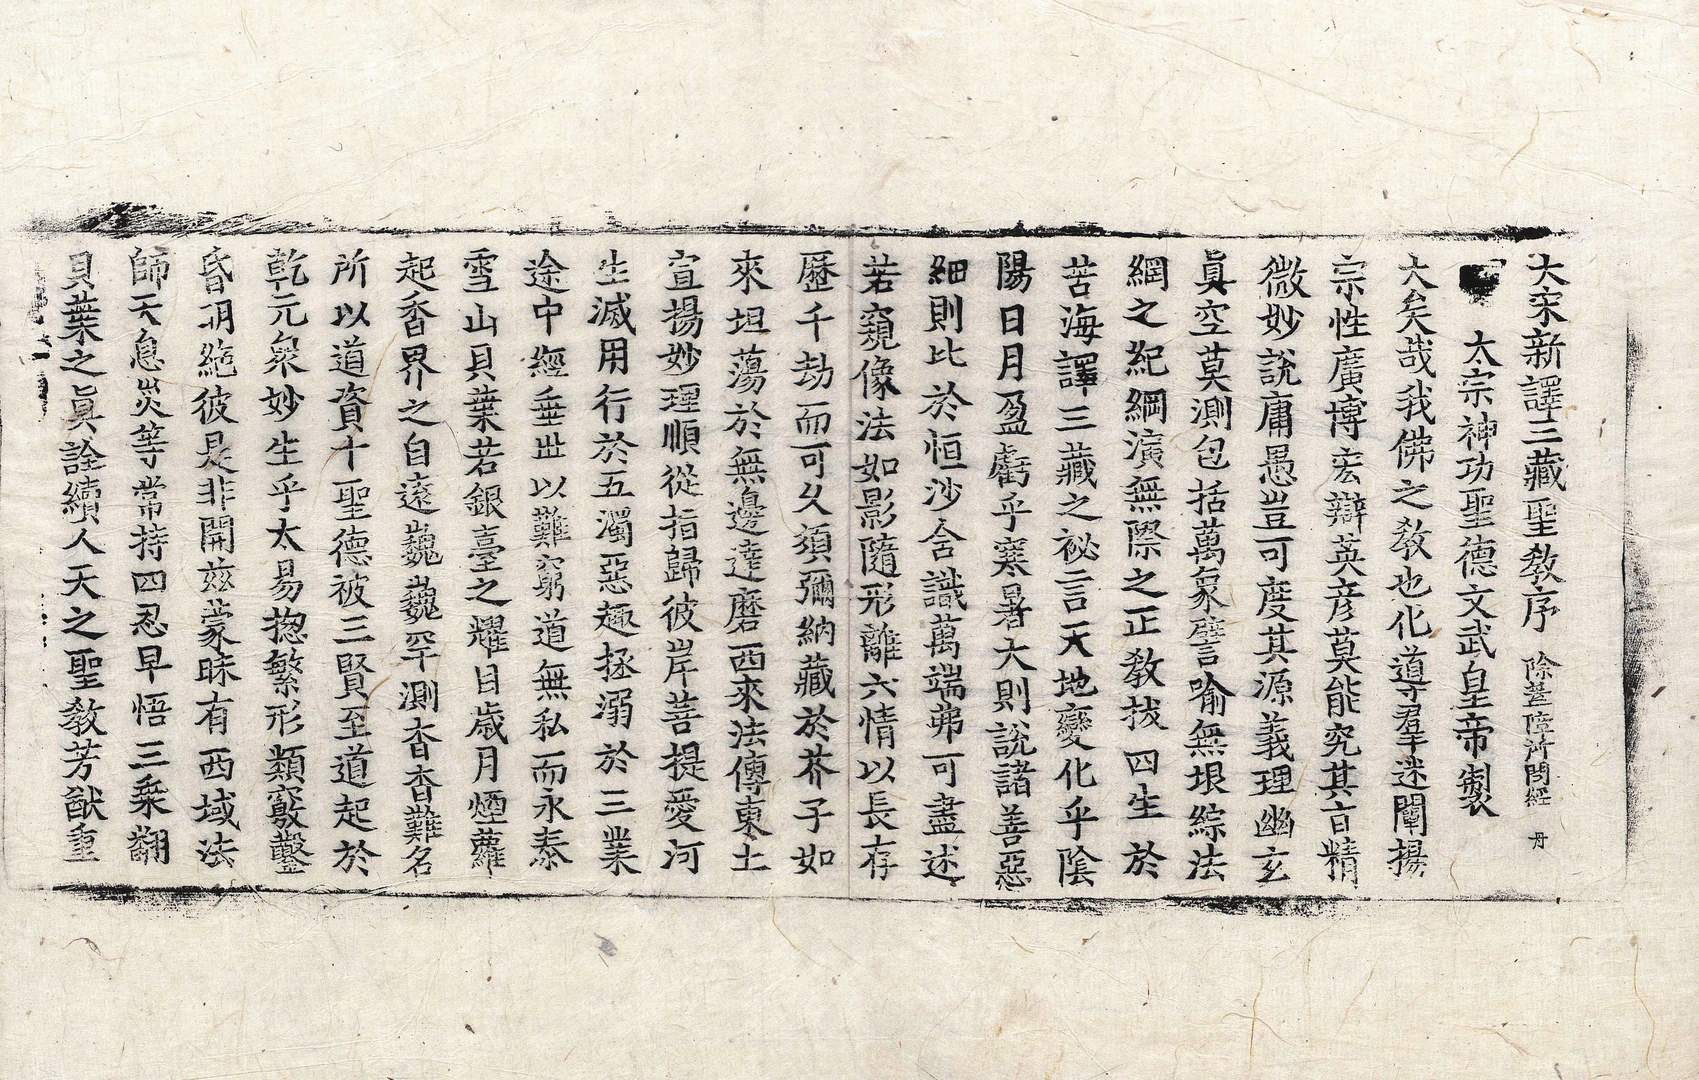 大宋新譯三藏聖敎序 除蓋障所問經 丹
太宗神功聖德文武皇帝製
大矣哉我佛之敎也化導羣迷闡揚
宗性廣博宏辯英彥莫能究其言精
微妙說庸愚豈可度其源義理幽玄
眞空莫測包括萬象譬喻無垠綜法
網之紀綱演無際之正敎拔四生於
苦海譯三藏之祕言天地變化乎陰
陽日月盈虧乎寒暑大則說諸善惡
細則比於恒沙含識萬端弗可盡述
若窺像法如影隨形離六情以長存
歷千劫而可久須彌納藏於芥子如
來坦蕩於無邊達磨西來法傳東土
宣揚妙理順從指歸彼岸菩提愛河
生滅用行於五濁惡趣拯溺於三業
途中經垂世以難窮道無私而永泰
雪山貝葉若銀臺之耀目歲月煙蘿
起香界之自遠巍巍罕測杳杳難名
所以道資十聖德被三賢至道起於
乾元衆妙生乎太易揔繁形類竅鑿
昏明絶彼是非開玆蒙昧有西域法
師天息災等常持四忍早悟三乘翻
貝葉之眞詮續人天之聖敎芳猷重